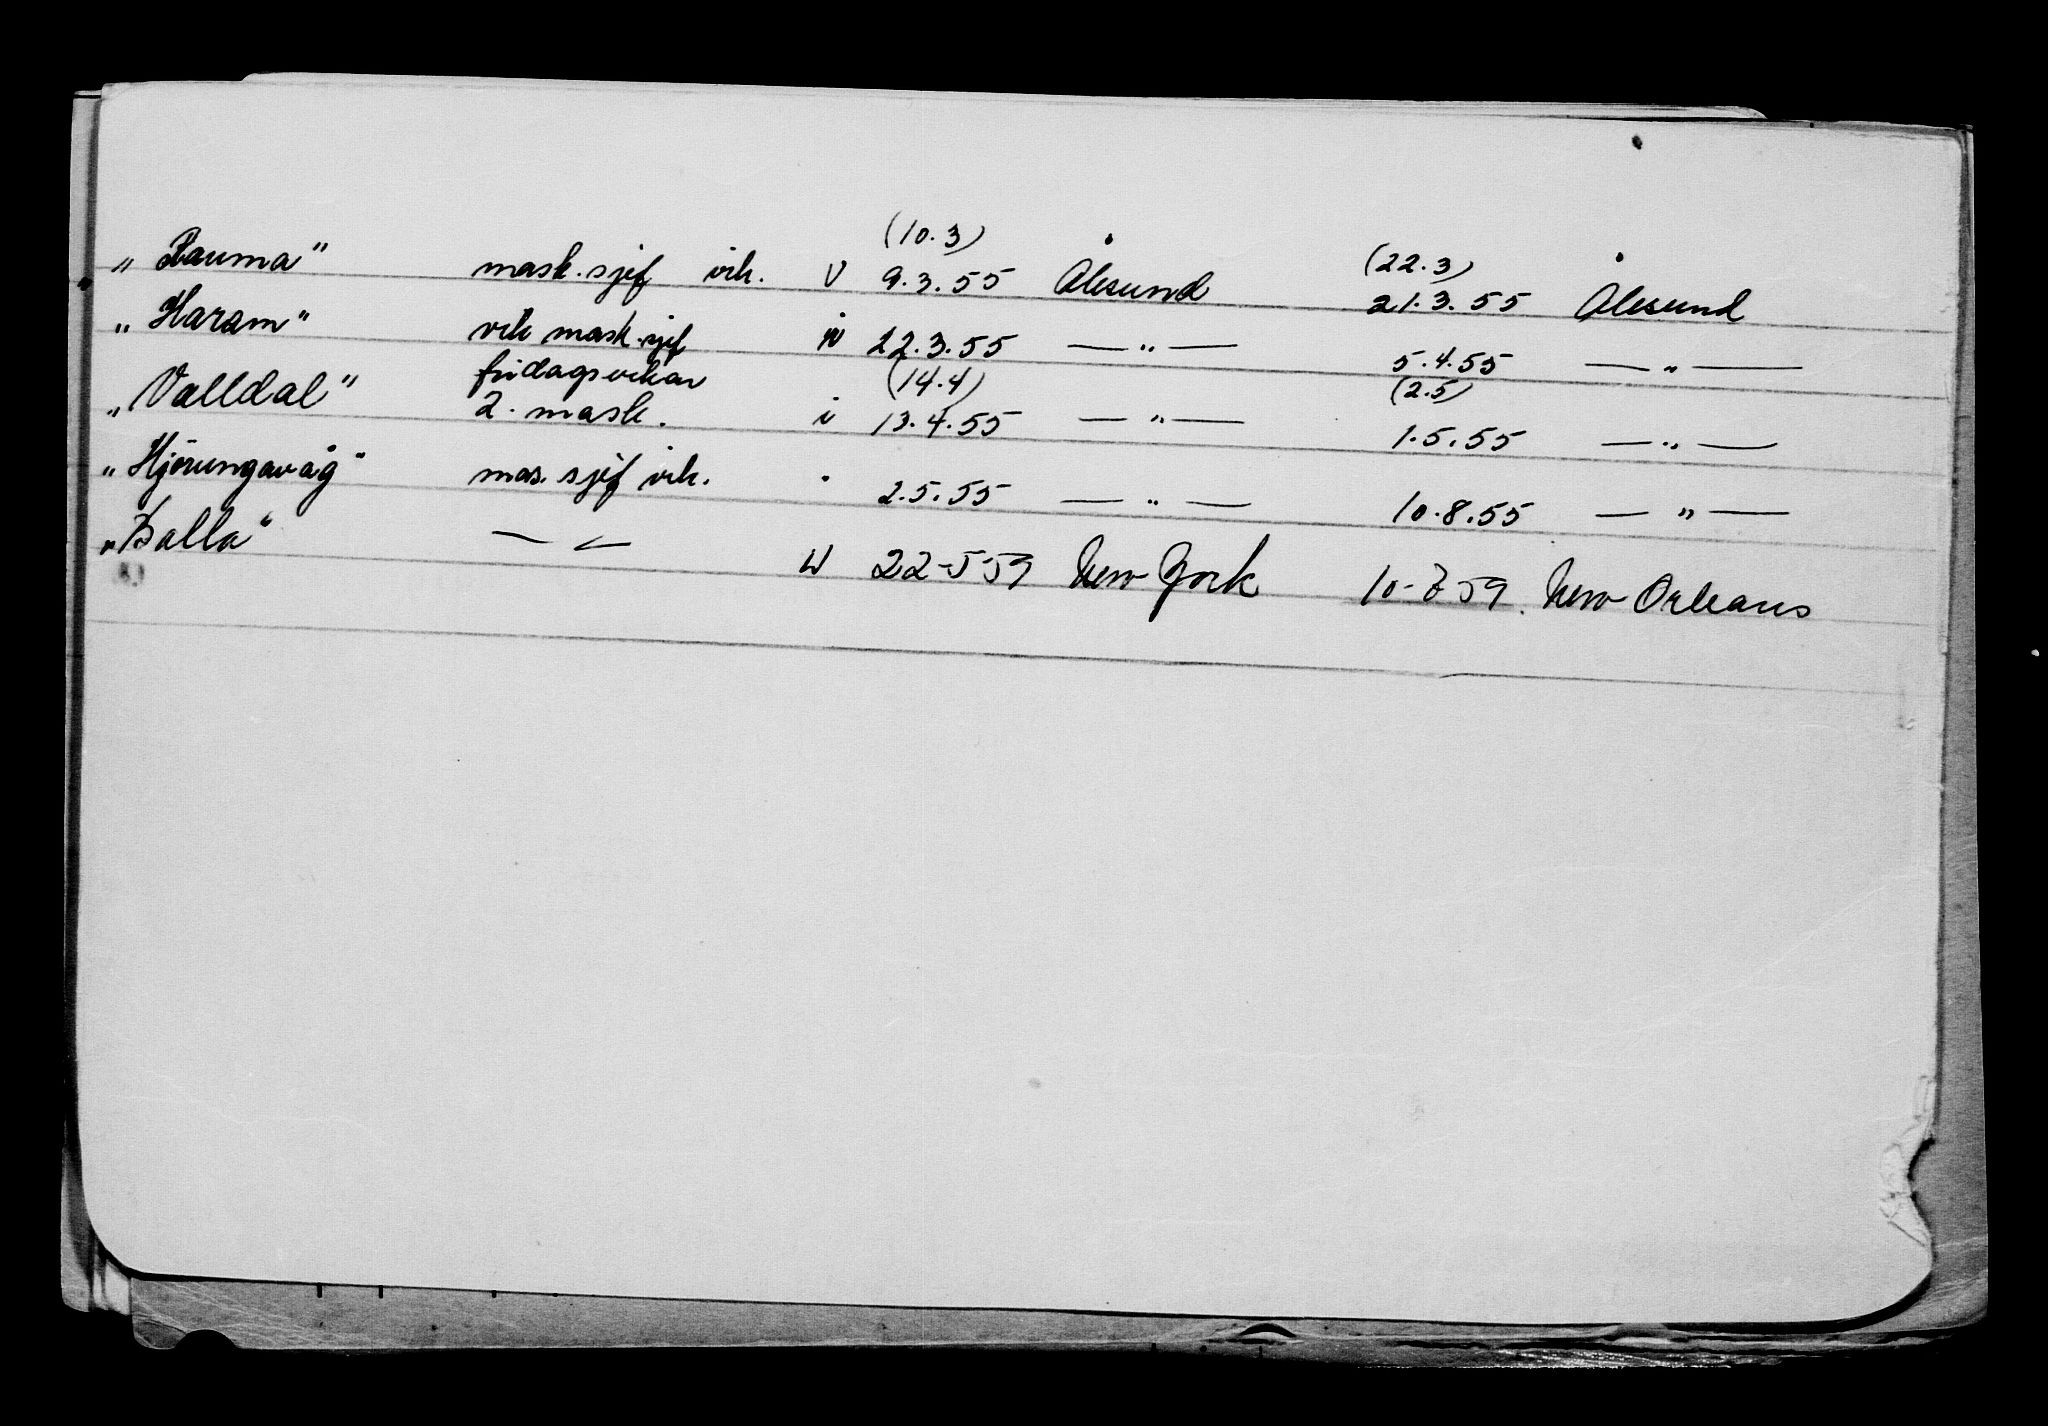 (10.3) (22.3)
„ Rauma" mask. sjef vik. V 9.3.55 Ålesund 21.3.55 Ålesund
„ Haram" vik mask. sjef 22.3.55 — " — 5.4.55 — " —
fridagsvikar (14.4) (2.5)
„ Valldal" 2. mask. i 13.4.55 — " — 1.5.55 — " —
„ Hjørungavåg" mas. sjef vik. " 2.5.55 — " — 10.8.55 — " —
„ Balla" — " — U 22-5-59 New York 10- 59. New Orleans